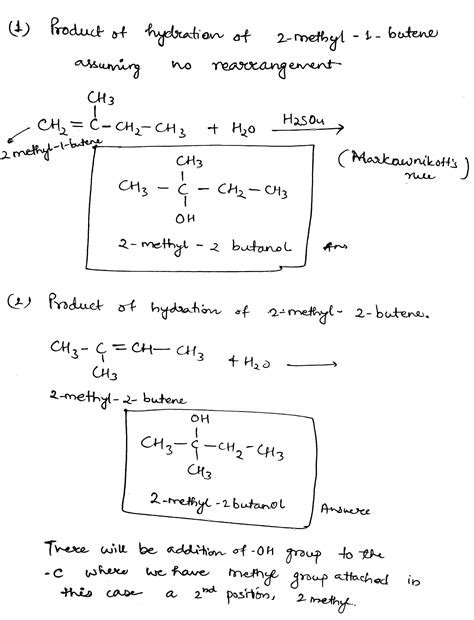 (1) Product of hydration of 2-methyl-1-butene
assuming no rearrangement
CH3
CH2=C-CH2-CH3 + H2O H2SO4
2 methyl-1-butene
(Markownikoff's rule)
CH3
CH3-C-CH2-CH3
OH
2-methyl-2 butanol Ans
(2) Product of hydration of 2-methyl-2-butene.
CH3-C=CH-CH3 + H2O
CH3
2-methyl-2-butene
OH
CH3-C-CH2-CH3
CH3
2-methyl-2butanol Answere
There will be addition of -OH group to the
-C where we have methyl group attached in
this case a 2nd position, 2 methyl.